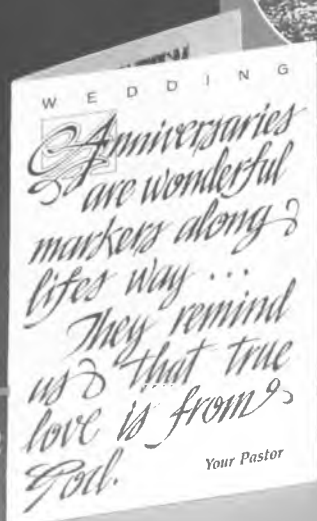 WEDDING
Anniversaries
are wonderful
markers along
lifes way ...
They remind
us that true
love is from
God.
Your Pastor